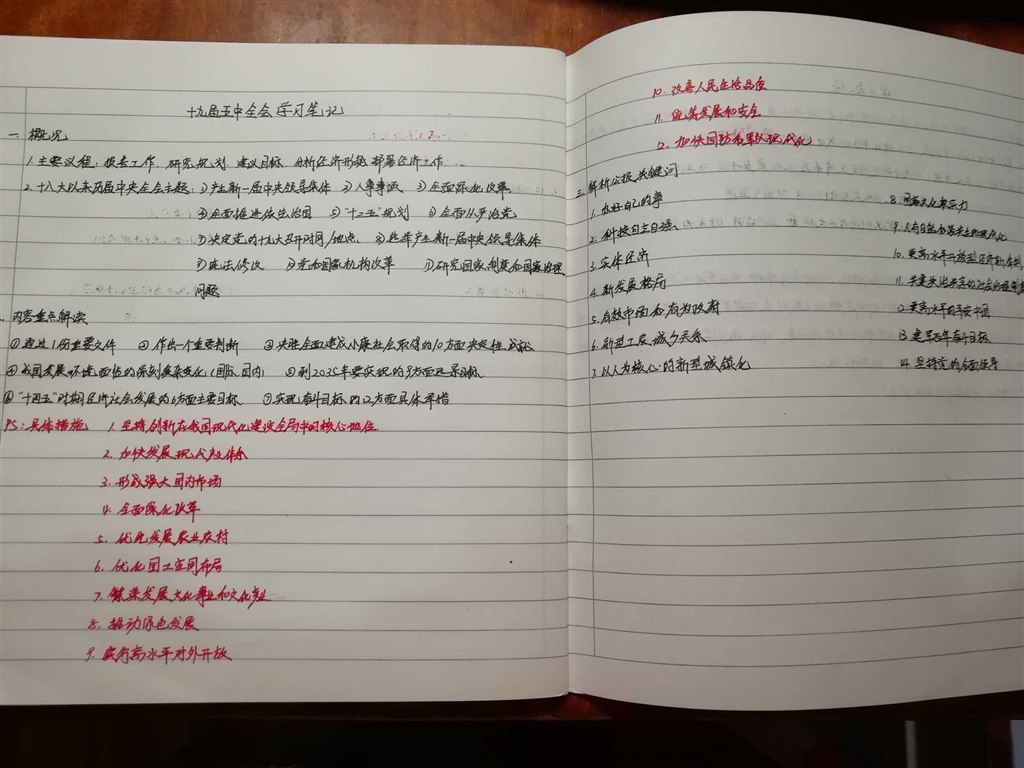 十九届五中全会学习笔记
一 概况
1.主要议程：报告工作 研究规划 建议目标 分析经济形势 部署经济工作
2.十八大以来历届中央全会主题：①产生新一届中央领导集体 ②人事事项 ③全面深化改革
④全面推进依法治国 ⑤"十三五"规划 ⑥全面从严治党
⑦决定党的十九大召开时间/地点 ⑧选举产生新一届中央领导集体
⑨宪法修改 ⑩党和国家机构改革 ⑪研究国家制度和国家治理
问题
内容重点解读
①通过1份重要文件 ②作出一个重要判断 ③决胜全面建成小康社会取得的10方面决定性成就
④我国发展环境面临的深刻复杂变化（国际、国内） ⑤到2035年要实现的9方面远景目标
⑥"十四五"时期经济社会发展的6方面主要目标 ⑦实现奋斗目标的12方面具体举措
PS：具体措施 1.坚持创新在我国现代化建设全局中的核心地位
2.加快发展现代产业体系
3.形成强大国内市场
4.全面深化改革
5.优先发展农业农村
6.优化国土空间布局
7.繁荣发展文化事业和文化产业
8.推动绿色发展
9.实行高水平对外开放
10.改善人民生活品质
11.统筹发展和安全
12.加快国防和军队现代化
三 解析公报关键词
1.办好自己的事
2.科技自立自强
3.实体经济
4.新发展格局
5.有效市场和有为政府
6.新型工农城乡关系
7.以人为核心的新型城镇化
8.国家文化软实力
9.人与自然和谐共生的现代化
10.更高水平开放型经济新体制
11.共建共治共享的社会治理制度
12.更高水平的平安中国
13.建军百年奋斗目标
14.坚持党的全面领导